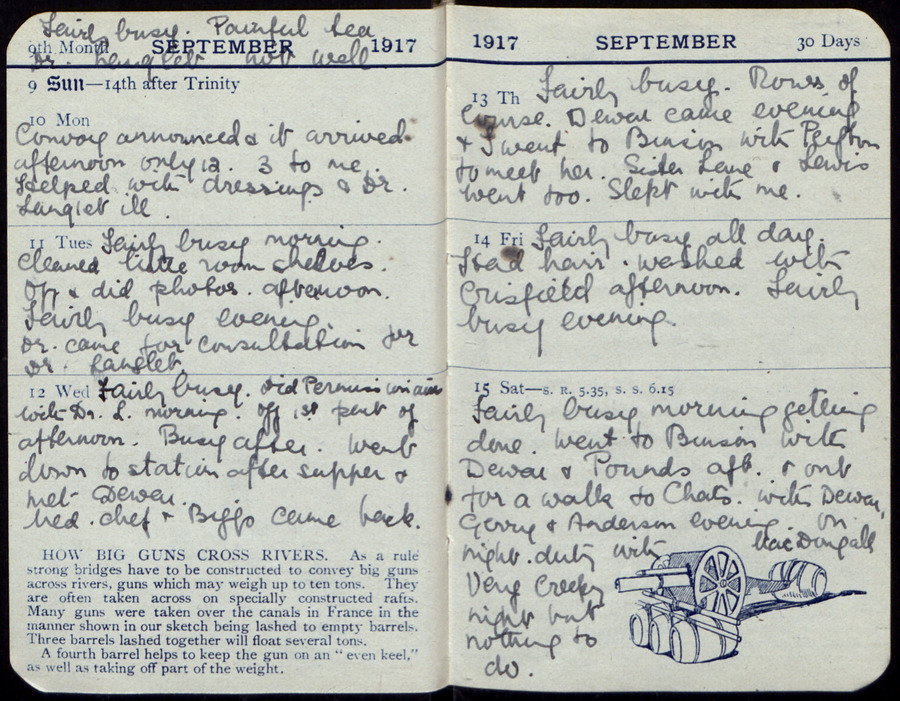 Fairly busy. Painful tea
9th Month SEPTEMBER 1917
Dr. Langlet not well
9 Sun—14th after Trinity
10 Mon
Convoy announced & it arrived
afternoon only 12. 3 to me.
Helped with dressings & Dr.
Langlet ill.
11 Tues Fairly busy morning.
Cleaned little room shelves.
Off & did photos. afternoon.
Fairly busy evening.
Dr. came for consultation for
Dr. Langlet.
12 Wed Fairly busy. Did
with Dr. L. morning. Off 1st part of
afternoon. Busy after. Went
down to station after supper &
met Dewar.
Med. chef & Biggs came back.
HOW BIG GUNS CROSS RIVERS. As a rule
strong bridges have to be constructed to convey big guns
across rivers, guns which may weigh up to ten tons. They
are often taken across on specially constructed rafts.
Many guns were taken over the canals in France in the
manner shown in our sketch being lashed to empty barrels.
Three barrels lashed together will float several tons.
A fourth barrel helps to keep the gun on an “ even keel,”
as well as taking off part of the weight.
1917 SEPTEMBER 30 Days
13 Th Fairly busy. Rows of
course. Dewar came evening
& I went to Binson with
to meet her. Sister Lane & Lewis
went too. Slept with me.
14 Fri Fairly busy all day.
Had hair washed with
Crisfield afternoon. Fairly
busy evening.
15 Sat—S. R. 5.35, S. S. 6.15
Fairly busy morning getting
done. Went to Binson with
Dewar & Pounds aft. & out
for a walk to Chats. with Dewar,
Gerry & Anderson evening. On
night duty with MacDougall
Very creepy
night but
nothing to
do.